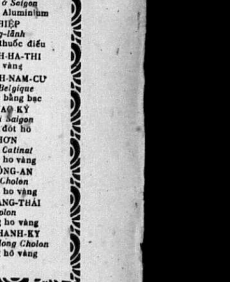 ở Saigon
Aluminium
HIỆP
g-lãnh
thuốc điếu
H-HA-THI
vàng
H-NAM-CƯ
Belgique
bằng bạc
AO KÝ
Saigon
đót hổ
HƠN
Catinat
ho vàng
ÔNG-AN
Cholon
ho vàng
ANG-THÁI
olon
ho vàng
HANH-KY
long Cholon
hổ vàng